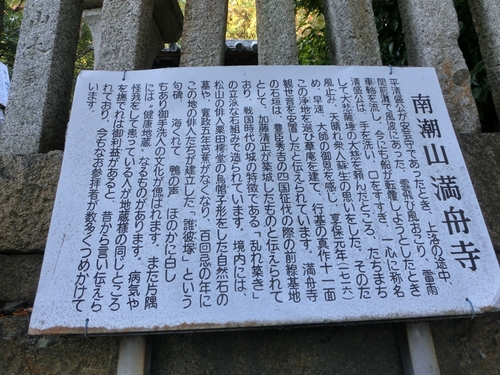 南潮山 満舟寺
平清盛公が安芸守であったとき、上洛の途中、
閃前灘で風波にあった。雲飛び風おこり、雷雨
車軸を流し、今にも船が転覆しようとしたとき
清盛公は、手を洗い、口をすすぎ、一心に称名
して大悲薩埵の大悲を頼んだところ、たちまち
風止み、天晴れ衆人蘇生の思いをした。そのた
め、早速、大師の御恩を感じ、享保元年(七一六)
この浄地を選び草庵を建て、行基の真作十一面
観世音を安置したと伝えられています。満舟寺
の石垣は、豊臣秀吉の四国征伐の際の前線基地
として、加藤清正が築城したものと伝えられて
おり、戦国時代の城の特徴である「乱れ築き」
の立派な石組みで造られています。境内には、
松山の俳人栗田樗堂の烏帽子形をした自然石の
墓や、寛政五年芭蕉がなくなり、百回忌の年に
この地の俳人たちが建立した「誰彼塚」という
句碑、海くれて 鴨の声 ほのかに白し
ちあり御手洗人の文化が偲ばれます。また片隅
には「健康地蔵」なるものがあります。病気や
怪我をして患っている人が地蔵様の同じところ
を撫でれば御利益があると、昔から言い伝えら
れており、今もなお参拝者が数多くつめかけて
います。